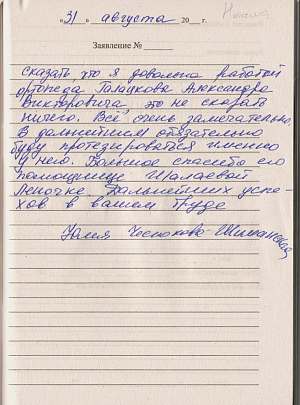 « 31 » августа 20___ г.
Заявление № ______
сказать, что я довольна работой
ортопеда Александра
Викторовича, это не сказать
ничего. Всё очень замечательно.
В дальнейшем обязательно
буду протезироваться именно
у него. Большое спасибо его
помощнице Шалаевой
Леночке. Дальнейших успе-
хов в вашем труде
Юлия